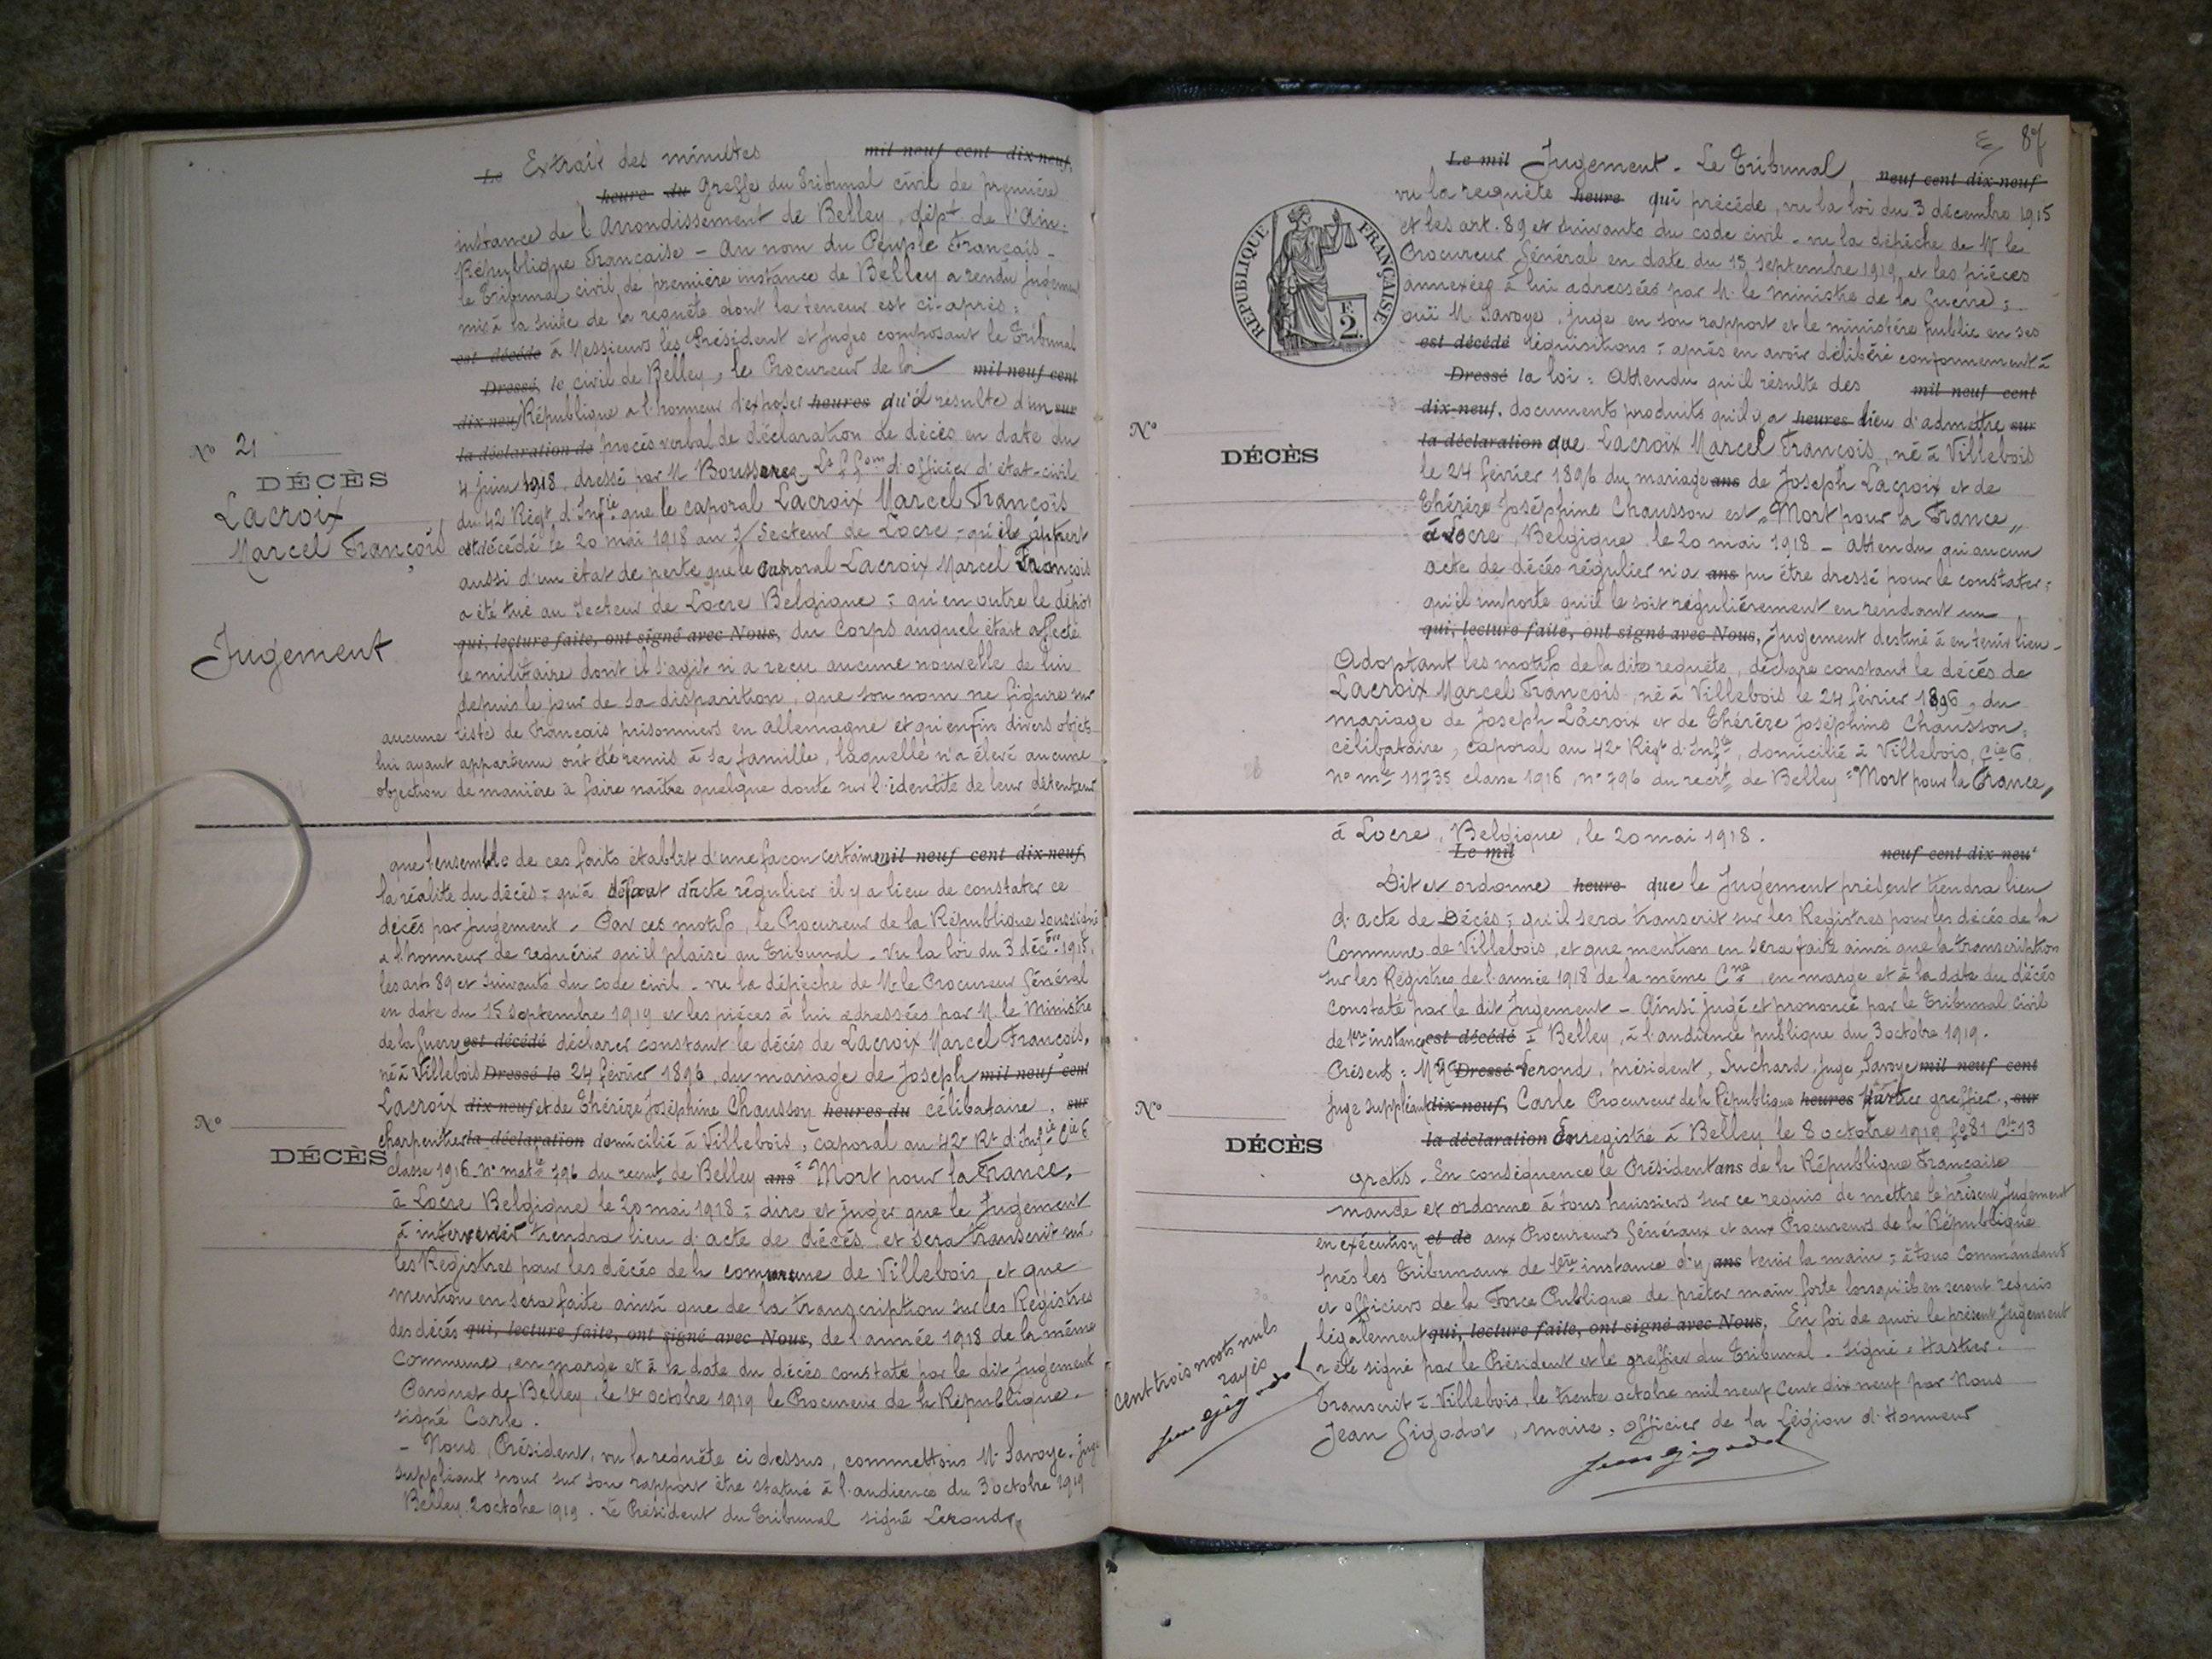 Le Extrait des minutes mil neuf cent dix-neuf,
heure du Greffe du Tribunal civil de première
instance de l'Arrondissement de Belley, dépt de l'Ain :
République Française – Au nom du Peuple Français –
le Tribunal civil de première instance de Belley a rendu jugement
mis à la suite de la requête dont la teneur est ci-après :
est décédé à Messieurs les Président et Juges composant le Tribunal
Dressé le civil de Belley, le Procureur de la mil neuf cent
dix-neuf République a l'honneur d'exposer heures qu'il résulte d'un sur
la déclaration de procès verbal de déclaration de décès en date du
4 juin 1918, dressé par M d'officier d'état-civil
du 42e Régt d'Infie que le caporal Lacroix Marcel François
est décédé le 20 mai 1918 au S/Secteur de Locre – qu'il appert
aussi d'un état de perte que le Caporal Lacroix Marcel François
a été tué au Secteur de Locre Belgique ; qu'en outre le dépôt
qui, lecture faite, ont signé avec Nous, du Corps auquel était affecté
le militaire dont il s'agit n'a reçu aucune nouvelle de lui
depuis le jour de sa disparition, que son nom ne figure sur
aucune liste de Français prisonniers en allemagne et qu'enfin divers objets
lui ayant appartenu ont été remis à sa famille, laquelle n'a élevé aucune
objection de manière à faire naître quelque doute sur l'identité de leur détenteur
N° 21
DÉCÈS
Lacroix
Marcel François
Jugement
que l'ensemble de ces faits établit d'une façon certaine mil neuf cent dix-neuf,
la réalité du décès ; qu'à défaut d'acte régulier il y a lieu de constater ce
décès par jugement – Par ces motifs, le Procureur de la République soussigné
a l'honneur de requérir qu'il plaise au Tribunal – Vu la loi du 3 décbre 1915,
les arts 89 et suivants du code civil – vu la dépêche de M. le Procureur Général
en date du 15 septembre 1919 et les pièces à lui adressées par M. le Ministre
de la Guerre est décédé déclarer constant le décès de Lacroix Marcel François,
né à Villebois Dressé le 24 février 1896, du mariage de Joseph mil neuf cent
Lacroix dix-neuf et de Thérèze Joséphine Chausson heures du célibataire, sur
charpentier la déclaration domicilié à Villebois, caporal au 42e Rt d'Infie Cie 6
classe 1916. n° matle 796 du recrut de Belley ans "Mort pour la France,
à Locre Belgique le 20 mai 1918 ; dire et juger que le Jugement
à intervenir tiendra lieu d'acte de décès, et sera transcrit sur
les Registres pour les décès de la commune de Villebois, et que
mention en sera faite ainsi que de la transcription sur les Régistres
des décès qui, lecture faite, ont signé avec Nous, de l'année 1918 de la même
Commune, en marge et à la date du décès constaté par le dit Jugement
Parquet de Belley, le 1er octobre 1919 le Procureur de la République –
signé Carle.
– Nous, Président, vu la requête ci dessus, commettons M. Savoye, Juge
suppléant pour sur son rapport être statué à l'audience du 3 octobre 1919
Belley 2 octobre 1919. Le Président du Tribunal signé Verond
N°
DÉCÈS
87
Le mil Jugement – Le Tribunal, neuf cent dix-neuf
vu la requête heure qui précède, vu la loi du 3 décembre 1915
et les art. 89 et suivants du code civil – vu la dépêche de M le
Procureur Général en date du 15 septembre 1919, et les pièces
annexées à lui adressées par M. le Ministre de la Guerre ;
ouï M. Savoye, juge en son rapport et le ministère public en ses
est décédé réquisitions ; après en avoir délibéré conformément à
Dressé la loi : Attendu qu'il résulte des mil neuf cent
dix-neuf, documents produits qu'il y a heures lieu d'admettre sur
la déclaration que Lacroix Marcel François, né à Villebois
le 24 février 1896 du mariage ans de Joseph Lacroix et de
Thérèze Joséphine Chausson est "Mort pour la France"
à Locre, Belgique le 20 mai 1918 – attendu qu'aucun
acte de décès régulier n'a ans pu être dressé pour le constater ;
qu'il importe qu'il le soit régulièrement en rendant un
qui, lecture faite, ont signé avec Nous, Jugement destiné à en tenir lieu –
Adoptant les motifs de la dite requête, déclare constant le décès de
Lacroix Marcel François, né à Villebois le 24 février 1896, du
mariage de Joseph Lacroix et de Thérèze Joséphine Chausson,
célibataire, caporal au 42e Régt d'Infie, domicilié à Villebois, Cie 6.
n° mle 11735 classe 1916, n° 796 du recrt de Belley "Mort pour la France,
RÉPUBLIQUE FRANÇAISE
F. 2.
N°
DÉCÈS
à Locre, Belgique, le 20 mai 1918.
Le mil neuf cent dix-neuf
Dit et ordonne heure que le Jugement présent tiendra lieu
d'acte de Décès ; qu'il sera transcrit sur les Registres pour les décès de la
Commune de Villebois, et que mention en sera faite ainsi que la transcription
sur les Régistres de l'année 1918 de la même Cne, en marge et à la date du décès
constaté par le dit Jugement – Ainsi jugé et prononcé par le Tribunal civil
de 1ere instance est décédé à Belley, à l'audience publique du 3 octobre 1919.
Présents : MM Dressé Verond, président, Suchard, Juge, Savoye mil neuf cent
Juge suppléant dix-neuf, Carle Procureur de la République heures Hastier greffier, sur
la déclaration de Enregistré à Belley le 8 octobre 1919 fo 81 Ce 13
gratis. En conséquence le Président ans de la République Française
mande et ordonne à tous huissiers sur ce requis de mettre le présent Jugement
en exécution et de aux Procureurs Généraux et aux Procureurs de la République
près les Tribunaux de 1ère instance d'y ans tenir la main ; à tous Commandants
et officiers de la Force Publique de prêter main forte lorsqu'ils en seront requis
légalement qui, lecture faite, ont signé avec Nous, En foi de quoi le présent Jugement
a été signé par le Président et le greffier du Tribunal. signé : Hastier.
Transcrit à Villebois, le trente octobre mil neuf cent dix neuf par Nous
Jean Gigodot, maire, officier de la Légion d'Honneur
Jean Gigodot
N°
DÉCÈS
Cent trois mots nuls
rayés
Jean Gigodot